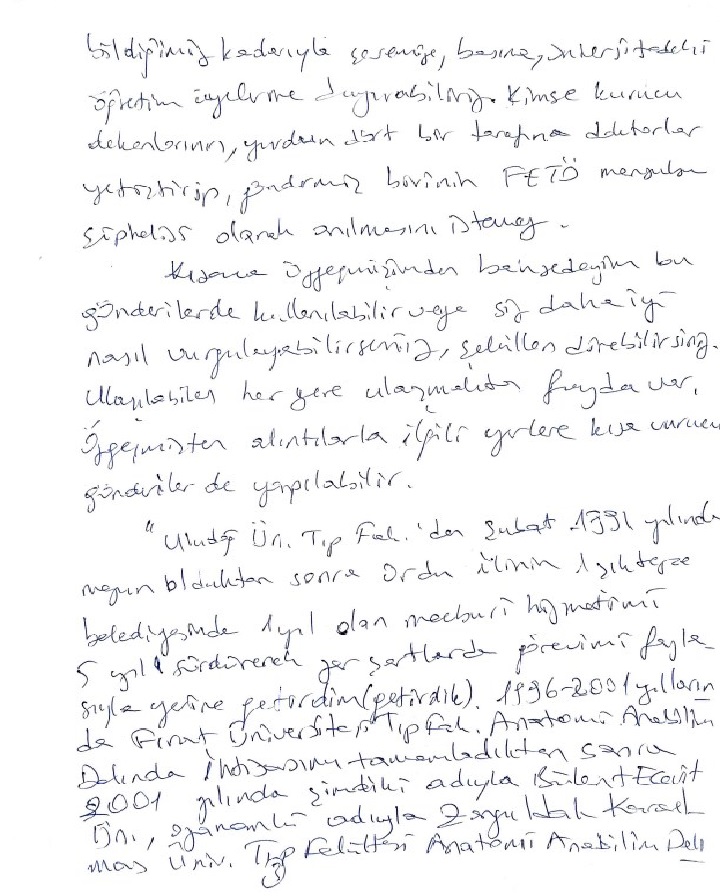 bildiğimiz kadarıyla basına,
öğretim üyelerine duyurabiliriz. Kimse kurucu
dekanlarının, yurdun dört bir tarafına doktorlar
yetiştirip, birinin FETÖ mensubu
şüphelisi olarak anılmasını istemez.
Kısaca Özgeçmişimden bahsedeyim bu
gönderilerde kullanılabilir veya siz daha iyi
nasıl vurgulayabilirseniz, şekillendirebilirsiniz.
Ulaşılabilen her yere ulaşmakta fayda var.
Özgeçmişten alıntılarla ilgili yerlere kısa vurucu
gönderiler de yapılabilir.
"Uludağ Ün. Tıp Fak.'den Şubat 1991 yılında
mezun olduktan sonra Ordu ilinin Işıktepe
belediyesinde 1 yıl olan mecburi hizmetimi
5 yıl sürdürerek zor şartlarda görevimi fazla-
sıyla yerine getirdim (getirdik). 1996-2001 yılların
da Fırat Üniversitesi Tıp Fak. Anatomi Anabilim
Dalında ihtisasımı tamamladıktan sonra
2001 yılında şimdiki adıyla Bülent Ecevit
Ün., o zamanki adıyla Zonguldak Karael
mas Üniv. Tıp Fakültesi Anatomi Anabilim Dalı